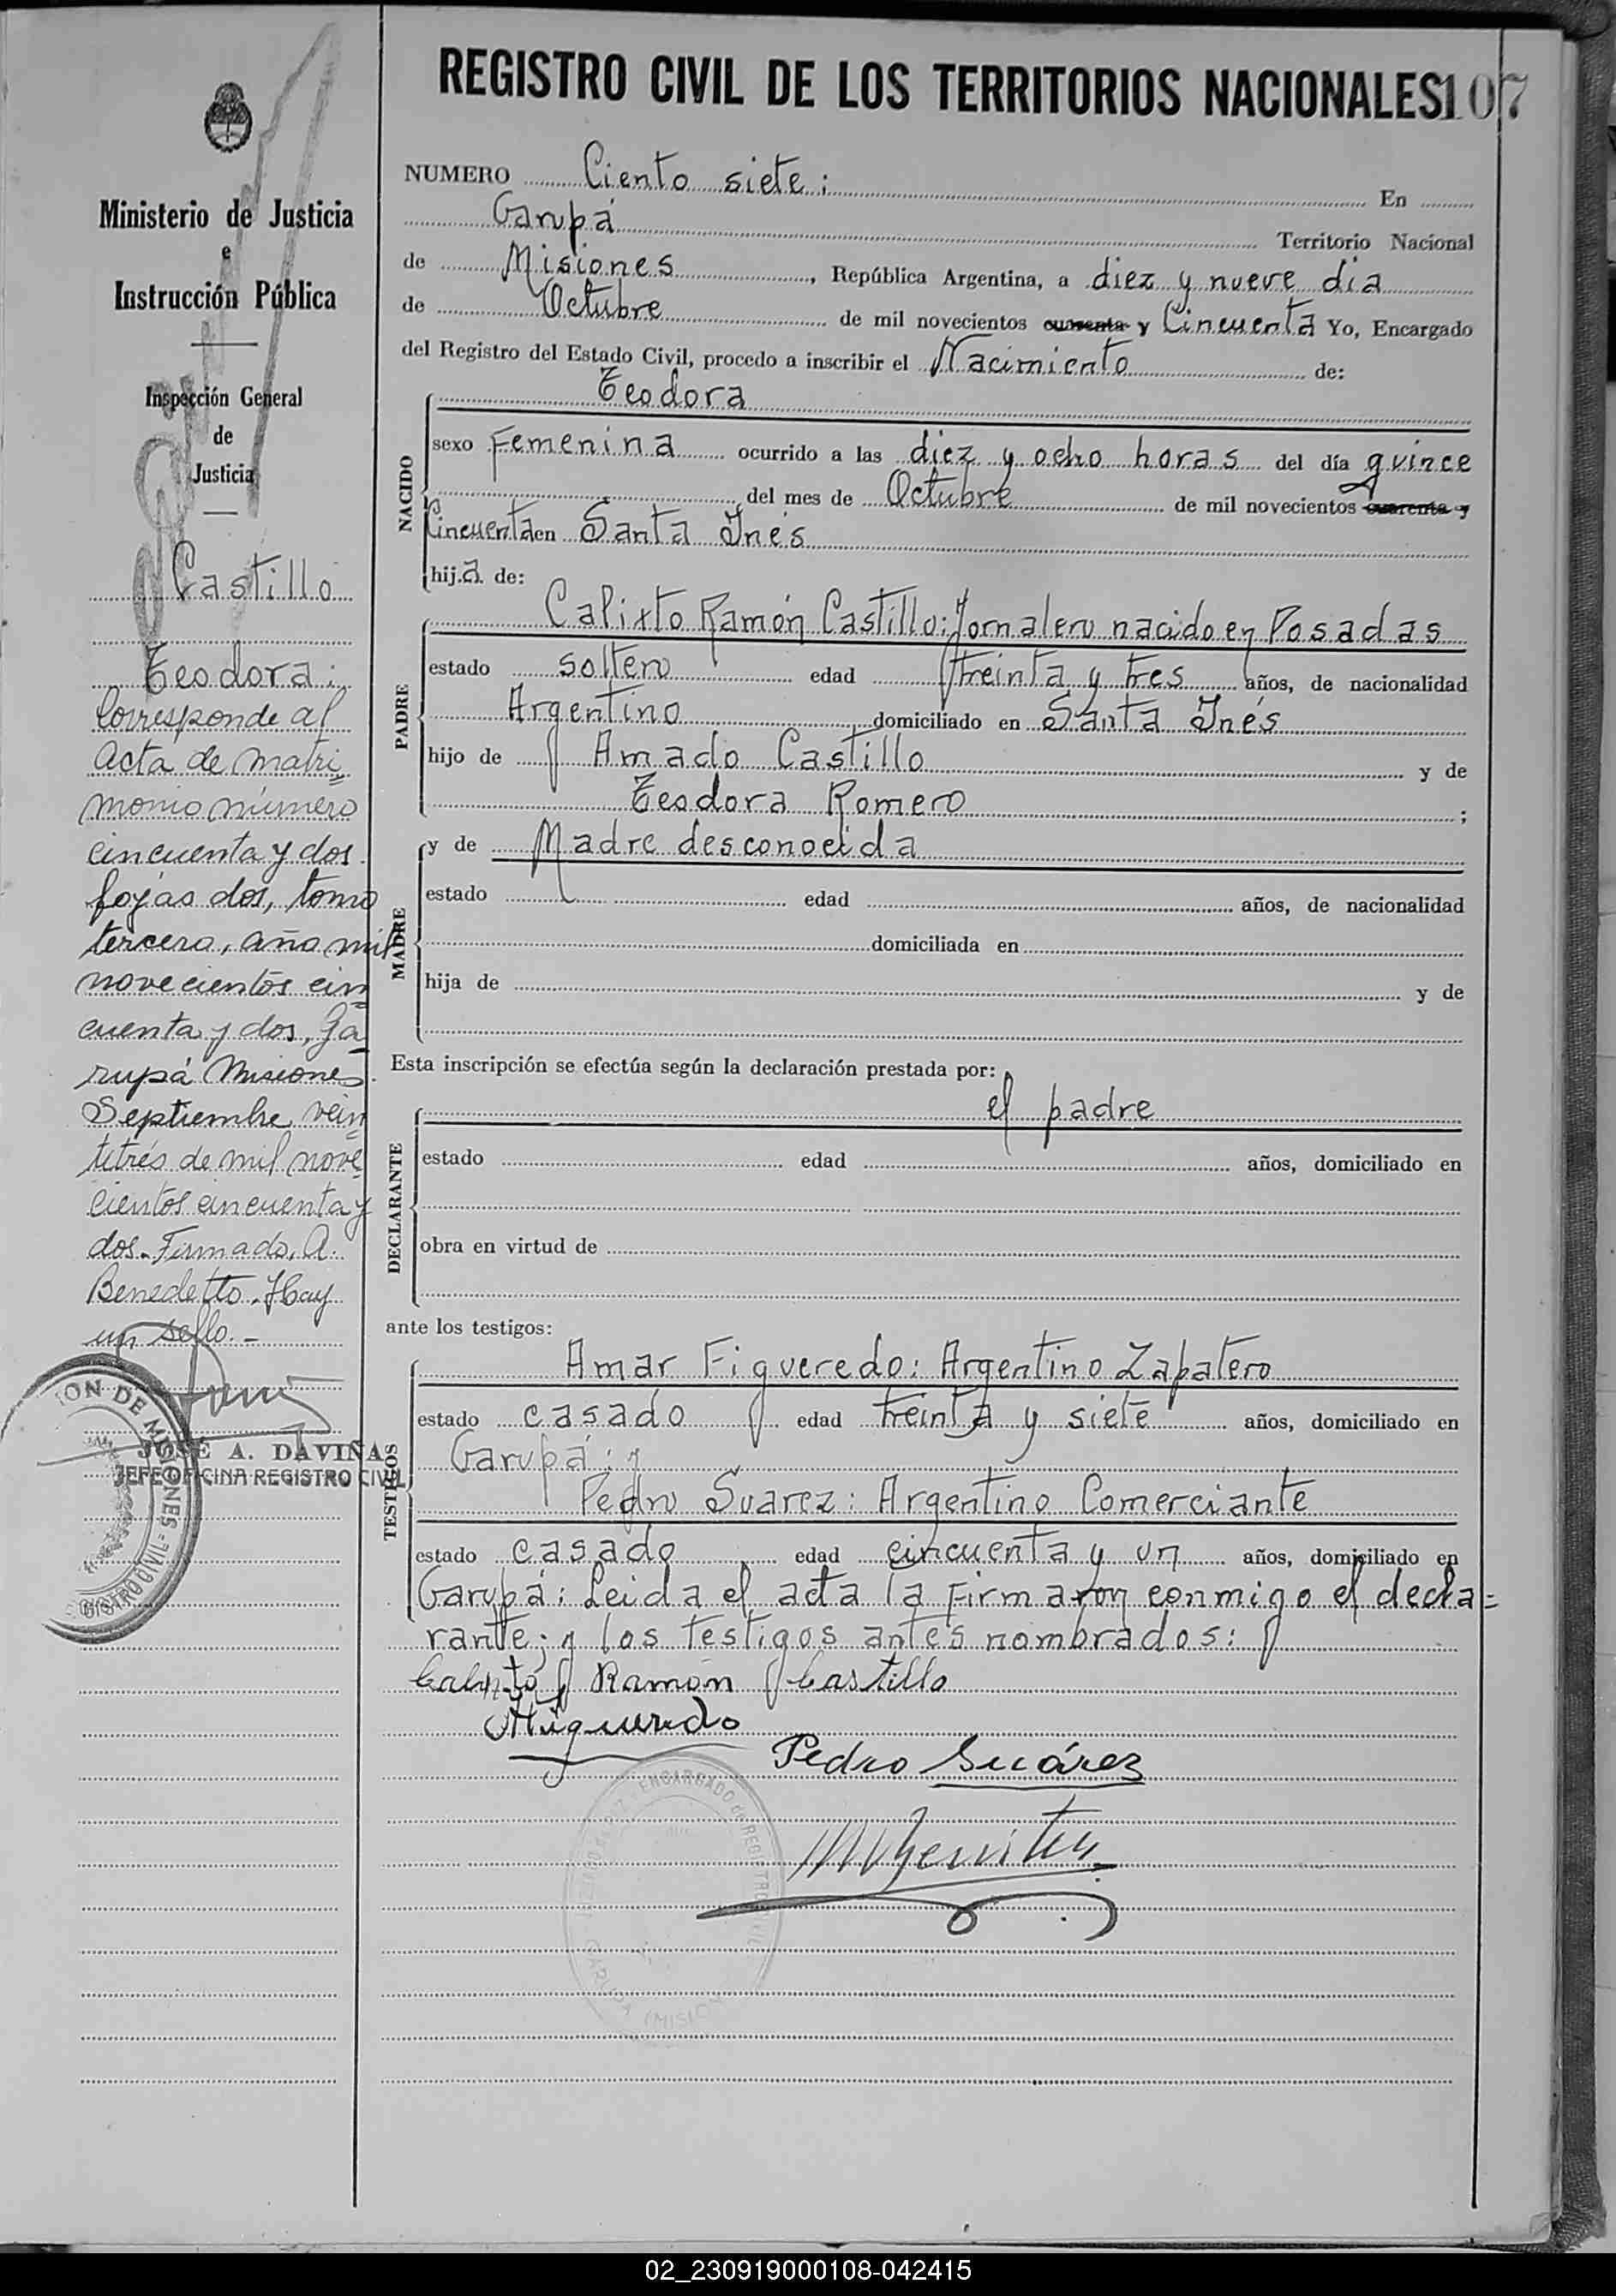 REGISTRO CIVIL DE LOS TERRITORIOS NACIONALES 107
Ministerio de Justicia
e
Instrucción Pública
Inspección General
de
Justicia
Castillo
Teodora:
Corresponde al
acta de matri=
monio número
cincuenta y dos
fojas dos, tomo
tercero, año mil
novecientos cin=
cuenta y dos, Ga=
rupá Misiones.
Septiembre vein=
titrés de mil nove=
cientos cincuenta y
dos. Firmado. A.
Benedetto. Hay
un sello.-
JOSÉ A. DAVIÑA
JEFE OFICINA REGISTRO CIVIL
NUMERO Ciento siete: En
Garupá Territorio Nacional
de Misiones, República Argentina, a diez y nueve dia
de Octubre de mil novecientos cuarenta y Cincuenta Yo, Encargado
del Registro del Estado Civil, procedo a inscribir el Nacimiento de:
Teodora
NACIDO
sexo Femenina ocurrido a las diez y ocho horas del día quince
del mes de Octubre de mil novecientos cuarenta y
Cincuenta en Santa Inés
hij.a. de:
Calixto Ramón Castillo: Jornalero nacido en Posadas
PADRE
estado soltero edad treinta y tres años, de nacionalidad
Argentino domiciliado en Santa Inés
hijo de Amado Castillo y de
Teodora Romero ;
y de Madre desconocida
MADRE
estado edad años, de nacionalidad
domiciliada en
hija de y de
Esta inscripción se efectúa según la declaración prestada por:
el padre
DECLARANTE
estado edad años, domiciliado en
obra en virtud de
ante los testigos:
Amar Figueredo: Argentino Zapatero
TESTIGOS
estado casado edad treinta y siete años, domiciliado en
Garupá: y
Pedro Suarez: Argentino Comerciante
estado casado edad cincuenta y un años, domiciliado en
Garupá: Leida el acta la Firmaron conmigo el decla=
rante; y los testigos antes nombrados:
Calixto Ramón Castillo
Pedro Suárez
ENCARGADO de REGISTRO CIVIL
02_230919000108-042415